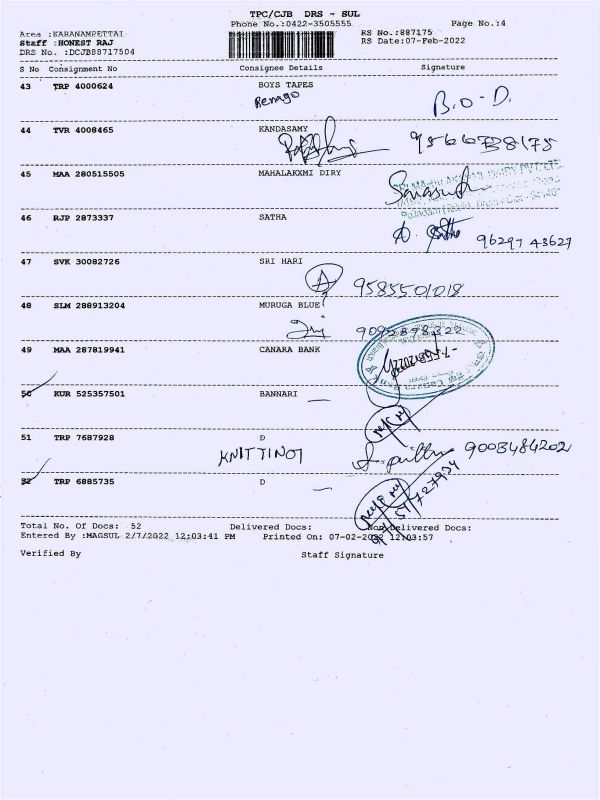 TPC/CJB DRS - SUL
Phone No.:0422-3505555 Page No.:4
Area :KARANAMPETTAI RS No.:887175
Staff :HONEST RAJ RS Date:07-Feb-2022
DRS No. :DCJB88717504
S No Consignment No Consignee Details Signature
43 TRP 4000624 BOYS TAPES
B.O-D.
44 TVR 4008465 KANDASAMY
45 MAA 280515505 MAHALAKXMI DIRY
46 RJP 2873337 SATHA
96297 43627
47 SVK 30082726 SRI HARI
9585501018
48 SLM 288913204 MURUGA BLUE
9095898322
49 MAA 287819941 CANARA BANK
50 KUR 525357501 BANNARI
51 TRP 7687928 D
KNITTINOT 9003484202
52 TRP 6885735 D
Total No. Of Docs: 52 Delivered Docs: Non Delivered Docs:
Entered By :MAGSUL 2/7/2022 12:03:41 PM Printed On: 07-02-2022 12:03:57
Verified By Staff Signature